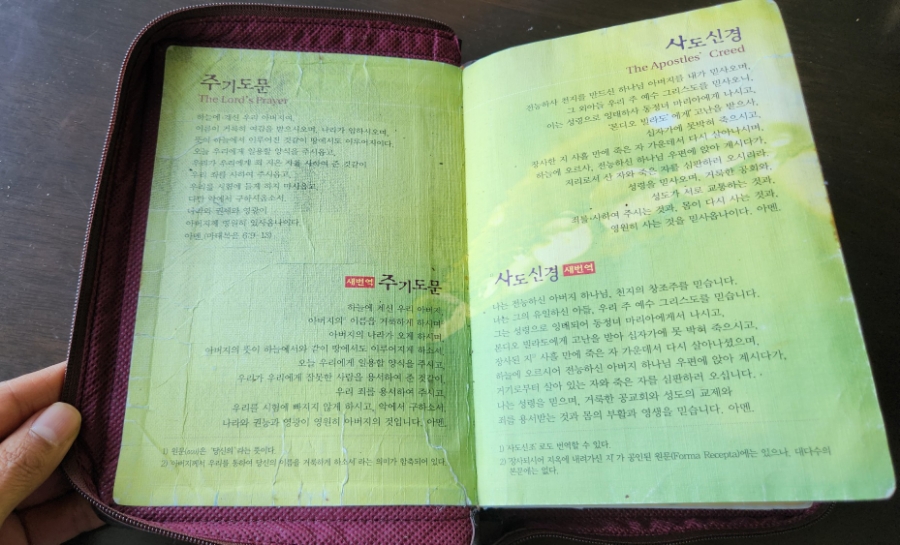 주기도문
The Lord's Prayer
하늘에 계신 우리 아버지여,
이름이 거룩히 여김을 받으시오며, 나라가 임하시오며,
뜻이 하늘에서 이루어진 것같이 땅에서도 이루어지이다.
오늘 우리에게 일용할 양식을 주시옵고,
우리가 우리에게 죄 지은 자를 사하여 준 것같이
우리 죄를 사하여 주시옵고,
우리를 시험에 들게 하지 마시옵고,
다만 악에서 구하시옵소서.
나라와 권세와 영광이
아버지께 영원히 있사옵나이다.
아멘.(마태복음 6:9-13)
새번역 주기도문
하늘에 계신 우리 아버지,
아버지의 이름을 거룩하게 하시며
아버지의 나라가 오게 하시며,
아버지의 뜻이 하늘에서와 같이 땅에서도 이루어지게 하소서.
오늘 우리에게 일용할 양식을 주시고,
우리가 우리에게 잘못한 사람을 용서하여 준 것같이
우리 죄를 용서하여 주시고,
우리를 시험에 빠지지 않게 하시고, 악에서 구하소서.
나라와 권능과 영광이 영원히 아버지의 것입니다. 아멘.
1) 원문(σου)은 '당신의' 라는 뜻이다.
2) '아버지께서 우리를 통하여 당신의 이름을 거룩하게 하소서' 라는 의미가 함축되어 있다.
사도신경
The Apostles' Creed
전능하사 천지를 만드신 하나님 아버지를 내가 믿사오며,
그 외아들 우리 주 예수 그리스도를 믿사오니,
이는 성령으로 잉태하사 동정녀 마리아에게 나시고,
본디오 빌라도에게 고난을 받으사,
십자가에 못박혀 죽으시고,
장사한 지 사흘 만에 죽은 자 가운데서 다시 살아나시며,
하늘에 오르사, 전능하신 하나님 우편에 앉아 계시다가,
저리로서 산 자와 죽은 자를 심판하러 오시리라.
성령을 믿사오며, 거룩한 공회와,
성도가 서로 교통하는 것과,
죄를 사하여 주시는 것과, 몸이 다시 사는 것과,
영원히 사는 것을 믿사옵나이다. 아멘.
사도신경 새번역
나는 전능하신 아버지 하나님, 천지의 창조주를 믿습니다.
나는 그의 유일하신 아들, 우리 주 예수 그리스도를 믿습니다.
그는 성령으로 잉태되어 동정녀 마리아에게서 나시고,
본디오 빌라도에게 고난을 받아 십자가에 못 박혀 죽으시고,
장사된 지 사흘 만에 죽은 자 가운데서 다시 살아나셨으며,
하늘에 오르시어 전능하신 아버지 하나님 우편에 앉아 계시다가,
거기로부터 살아 있는 자와 죽은 자를 심판하러 오십니다.
나는 성령을 믿으며, 거룩한 공교회와 성도의 교제와
죄를 용서받는 것과 몸의 부활과 영생을 믿습니다. 아멘.
1) '사도신조' 로도 번역할 수 있다.
2) '장사되시어 지옥에 내려가신 지' 가 공인된 원문(Forma Recepta)에는 있으나, 대다수의
본문에는 없다.